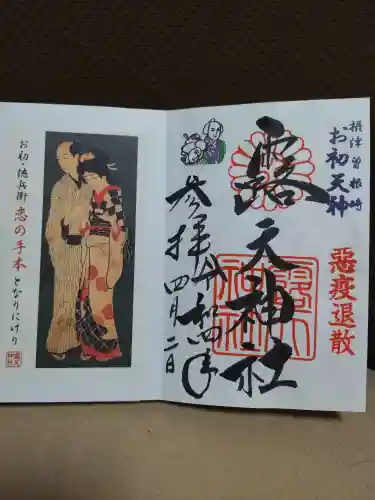 摂津曽根崎
お初天神
惡疫退散
露天神社
参拝 令和四年
四月二日
お初・徳兵衛
恋の手本となりにけり
露天神社